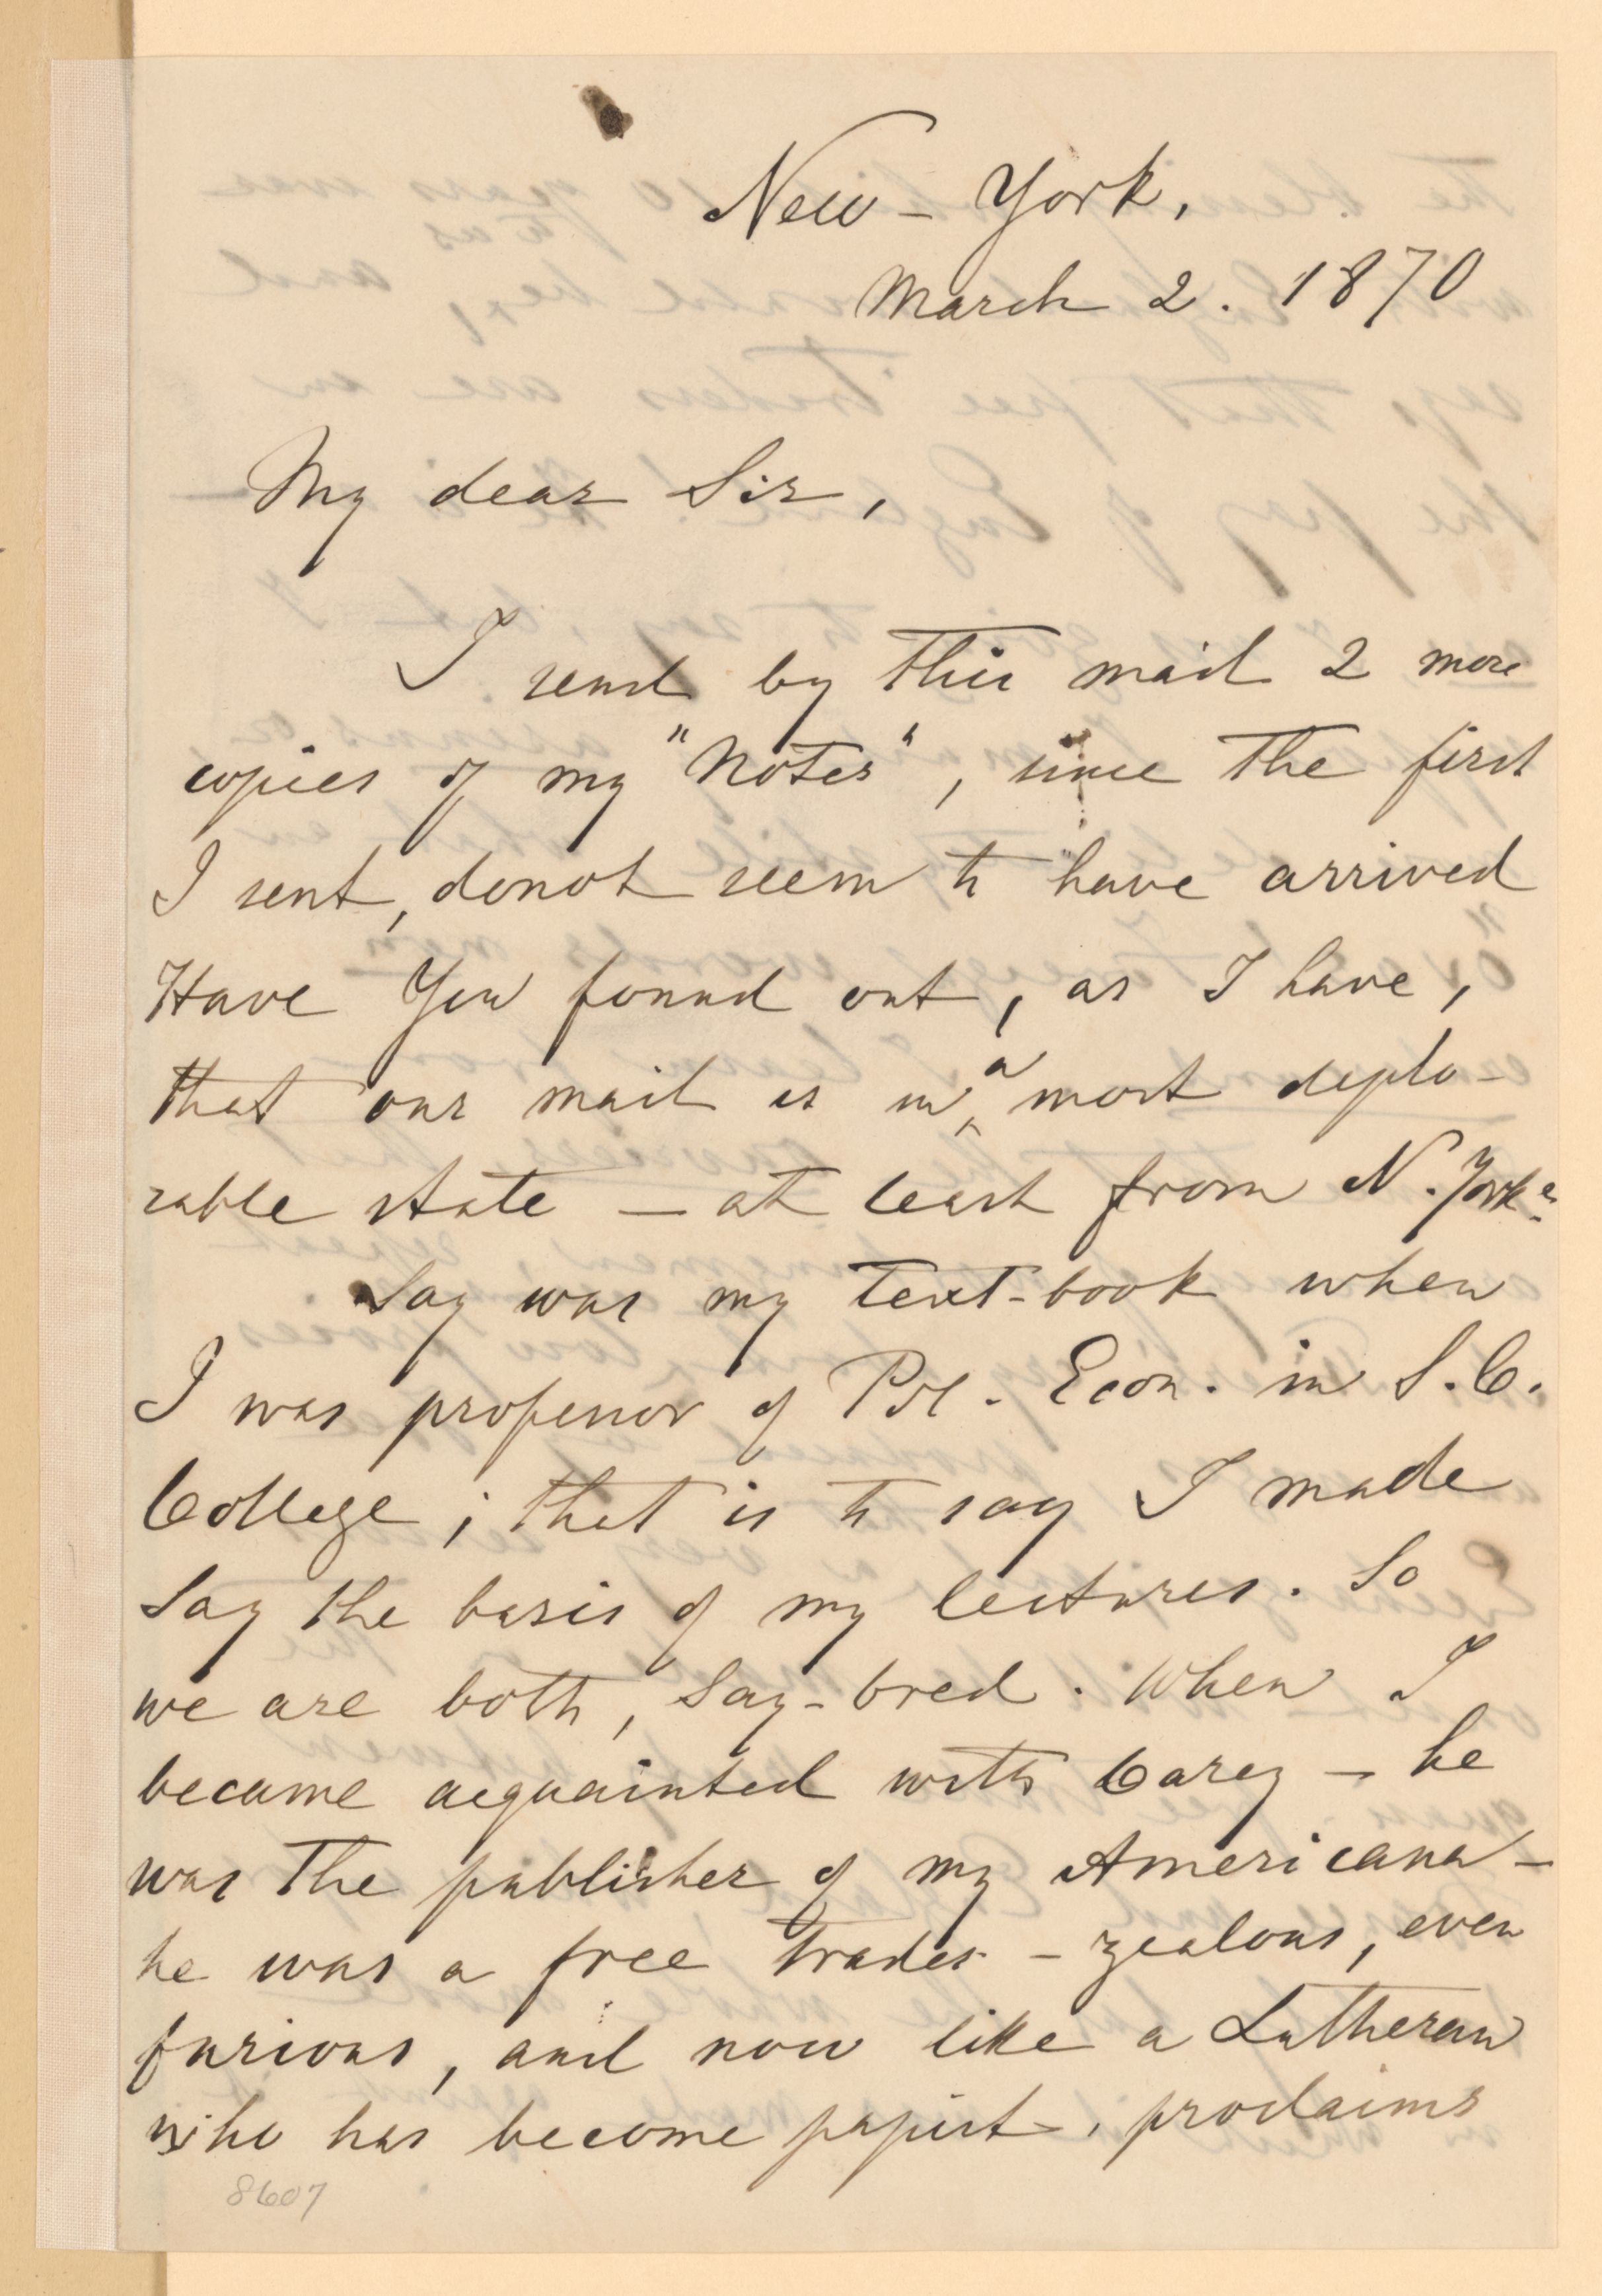 New-York,
March 2. 1870
My dear Sir,
I send by this mail 2 more
copies of my "Notes", since the first
I sent, donot seem to have arrived
Have You found out, as I have,
that our mail is in a most deplo-
rable state — at least from N. York?
Say was my text-book when
I was professor of Pol. Econ. in S. C.
College; that is to say I made
Say the basis of my lectures. So
we are both, Say-bred. When I
became acquainted with Carey — he
was the publisher of my Americana —
he was a free trader — zealous, even
furious, and now like a Lutheran
who has become papist, proclaims
8607